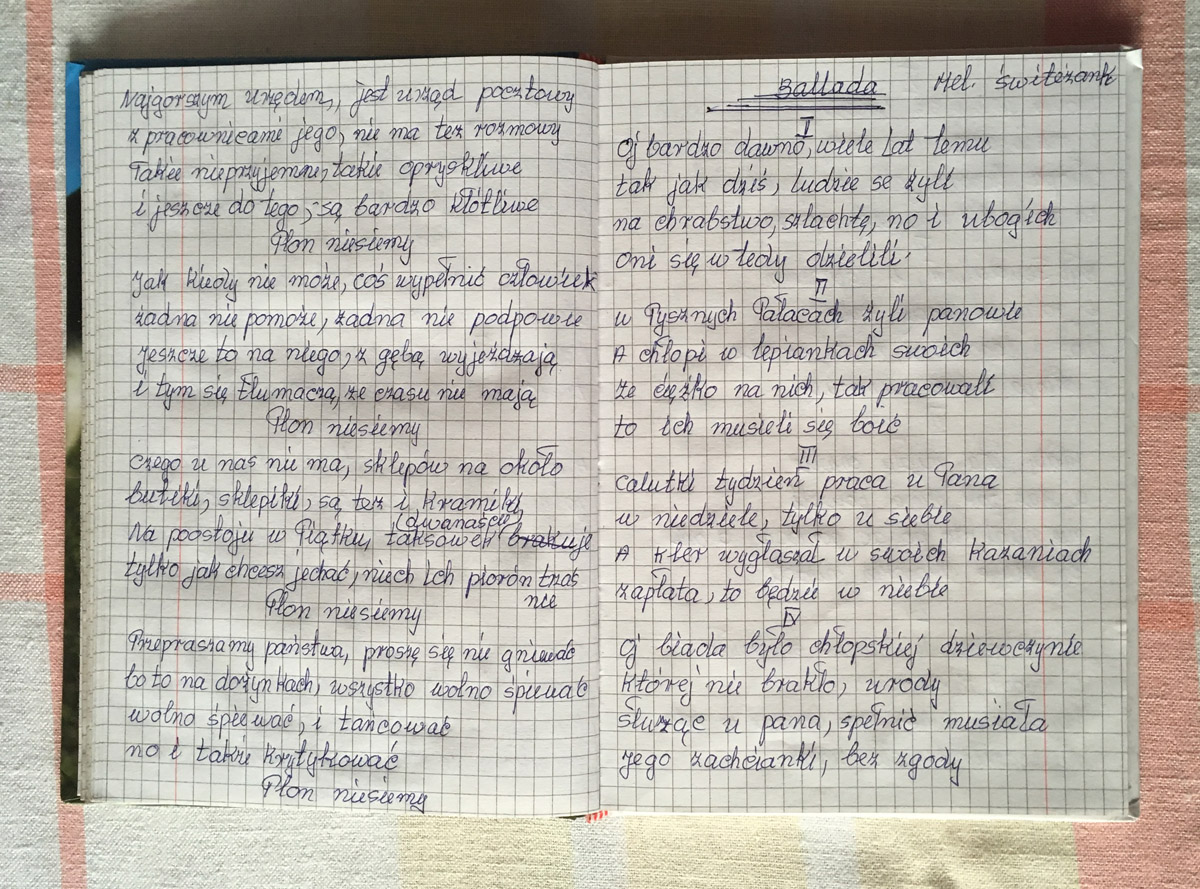 Najgorszym urzędem, jest urząd pocztowy
z pracownicami jego, nie ma też rozmowy
Takie nieprzyjemne, takie opryskliwe
i jeszcze do tego, są bardzo kłótliwe
Plon niesiemy
Jak kiedy nie może, coś wypełnić człowiek
żadna nie pomoże, żadna nie podpowie
jeszcze to na niego, z gębą wyjeżdzają
i tym się tłumaczą, że czasu nie mają
Plon niesiemy
czego u nas nie ma, sklepów na około
butiki, sklepiki, są też i kramiki
(dwanaście)
Na postoju w Piątku, taksówek brakuje
tylko jak chcesz jechać, niech ich piorón trzaś
nie
Plon niesiemy
Przepraszamy państwa, proszę się nie gniewać
bo to na dożynkach, wszystko wolno śpiewać
wolno śpiewać, i tańcować
no i także krytykować
Plon niesiemy
Ballada Mel. świtezank
I
Oj bardzo dawno, wiele lat temu
tak jak dziś, ludzie se żyli
na chrabstwo, szlachtę, no i ubogich
oni się w tedy dzielili.
II
w Pysznych Pałacach żyli panowie
A chłopi w lepiankach swoich
że ciężko na nich, tak pracowali
to ich musieli się boić
III
calutki tydzień praca u Pana
w niedziele, tylko u siebie
A kler wygłaszał w swoich kazaniach
zapłata, to będzie w niebie
IV
Oj biada było chłopskiej dziewczynie
której nie brakło, urody
służąc u pana, spełnić musiała
jego zachcianki, bez zgody